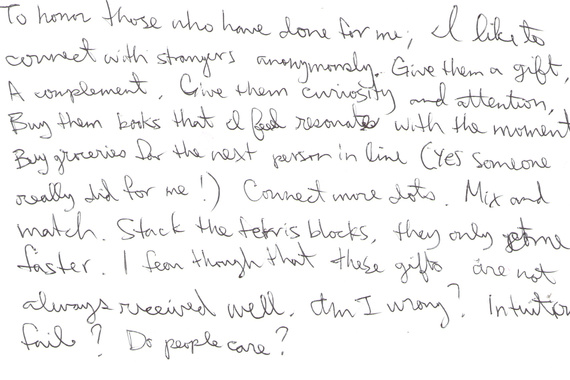 To honor those who have done for me, I like to
connect with strangers anonymously. Give them a gift,
A complement. Give them curiosity and attention,
Buy them books that I feel resonates with the moment
Buy groceries for the next person in line (Yes someone
really did for me!) Connect more dots. Mix and
match. Stack the tetris blocks, they only come
faster. I fear though that these gifts are not
always received well. Am I wrong? Intuition
fail? Do people care?